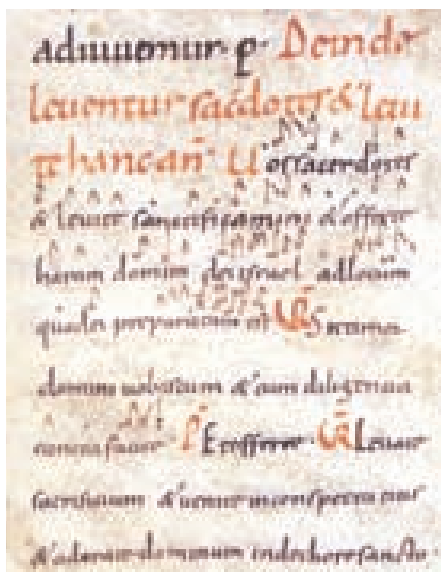 adiuuemur. p. Deinde
leuentur sacdotes & leui
te hanc an̄ Uos sacerdotes
& leuite sanctificamini & offerte
harum domini dei israel ad locum
qui ei preparatum est V̄ Sit timor
domini uobiscum & cum diligentia
cuncta facite P̄ Et offerte V̄ Leuate
sacrificium & uenite in conspectu eius
& adorate dominum in decore sancto